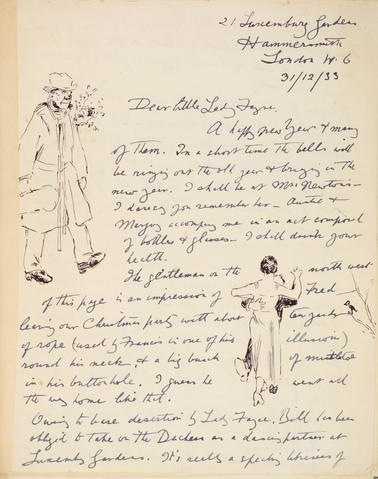 21 Luxemburg Gardens
Hammersmith
London W. 6
31/12/33
Dear Little Lady Fayre.
A happy New Year & many
of them. In a short time the bells will
be ringing out the old year & bringing in the
new year. I shall be at Mrs Newtons -
I daresay you remember her - Auntie &
Margery accompany me in an act composed
of bottles & glasses - I shall drink your
health.
The gentleman on the north west
of this page is an impression of Fred
leaving our Christmas party with about ten yards
of rope (used by Francis in one of his illusion)
round his neck, & a big bunch of mistletoe
in his buttonhole. I guess he went all
the way home like that.
Owing to base desertion by Lady Fayre, Bill has been
oblig'd to take on the Duchess as a dancing partner at
Luxembg Gardens. It's really a specing of